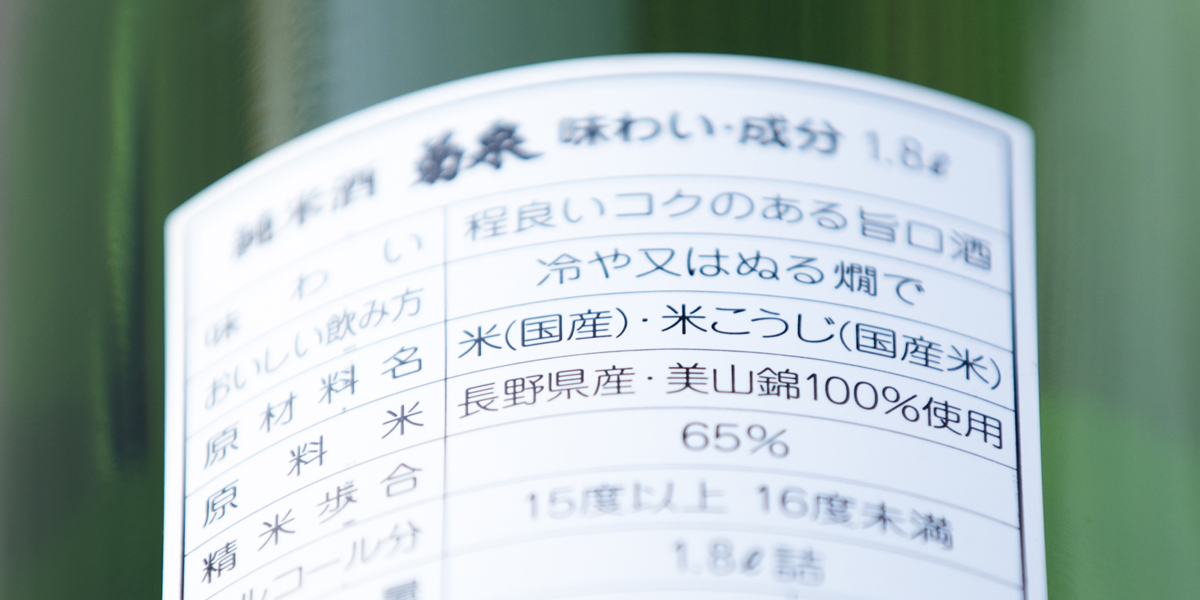 純米酒 菊泉 味わい・成分 1.8ℓ
味わい 程良いコクのある旨口酒
おいしい飲み方 冷や又はぬる燗で
原材料名 米(国産)・米こうじ(国産米)
原料米 長野県産・美山錦100%使用
精米歩合 65%
ルコール分 15度以上 16度未満
量 1.8ℓ詰